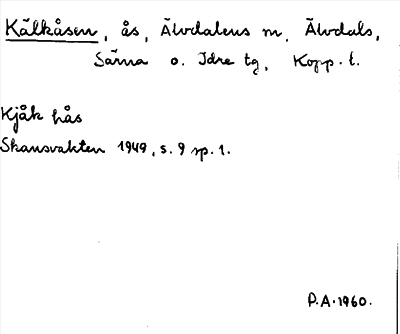 Kälkåsen, ås, Älvdalens m. Älvdals,
Särna o. Idre tg, Kopp. l.
Kjåk hås
Skansvakten 1949, s. 9 sp. 1.
P.A. 1960.